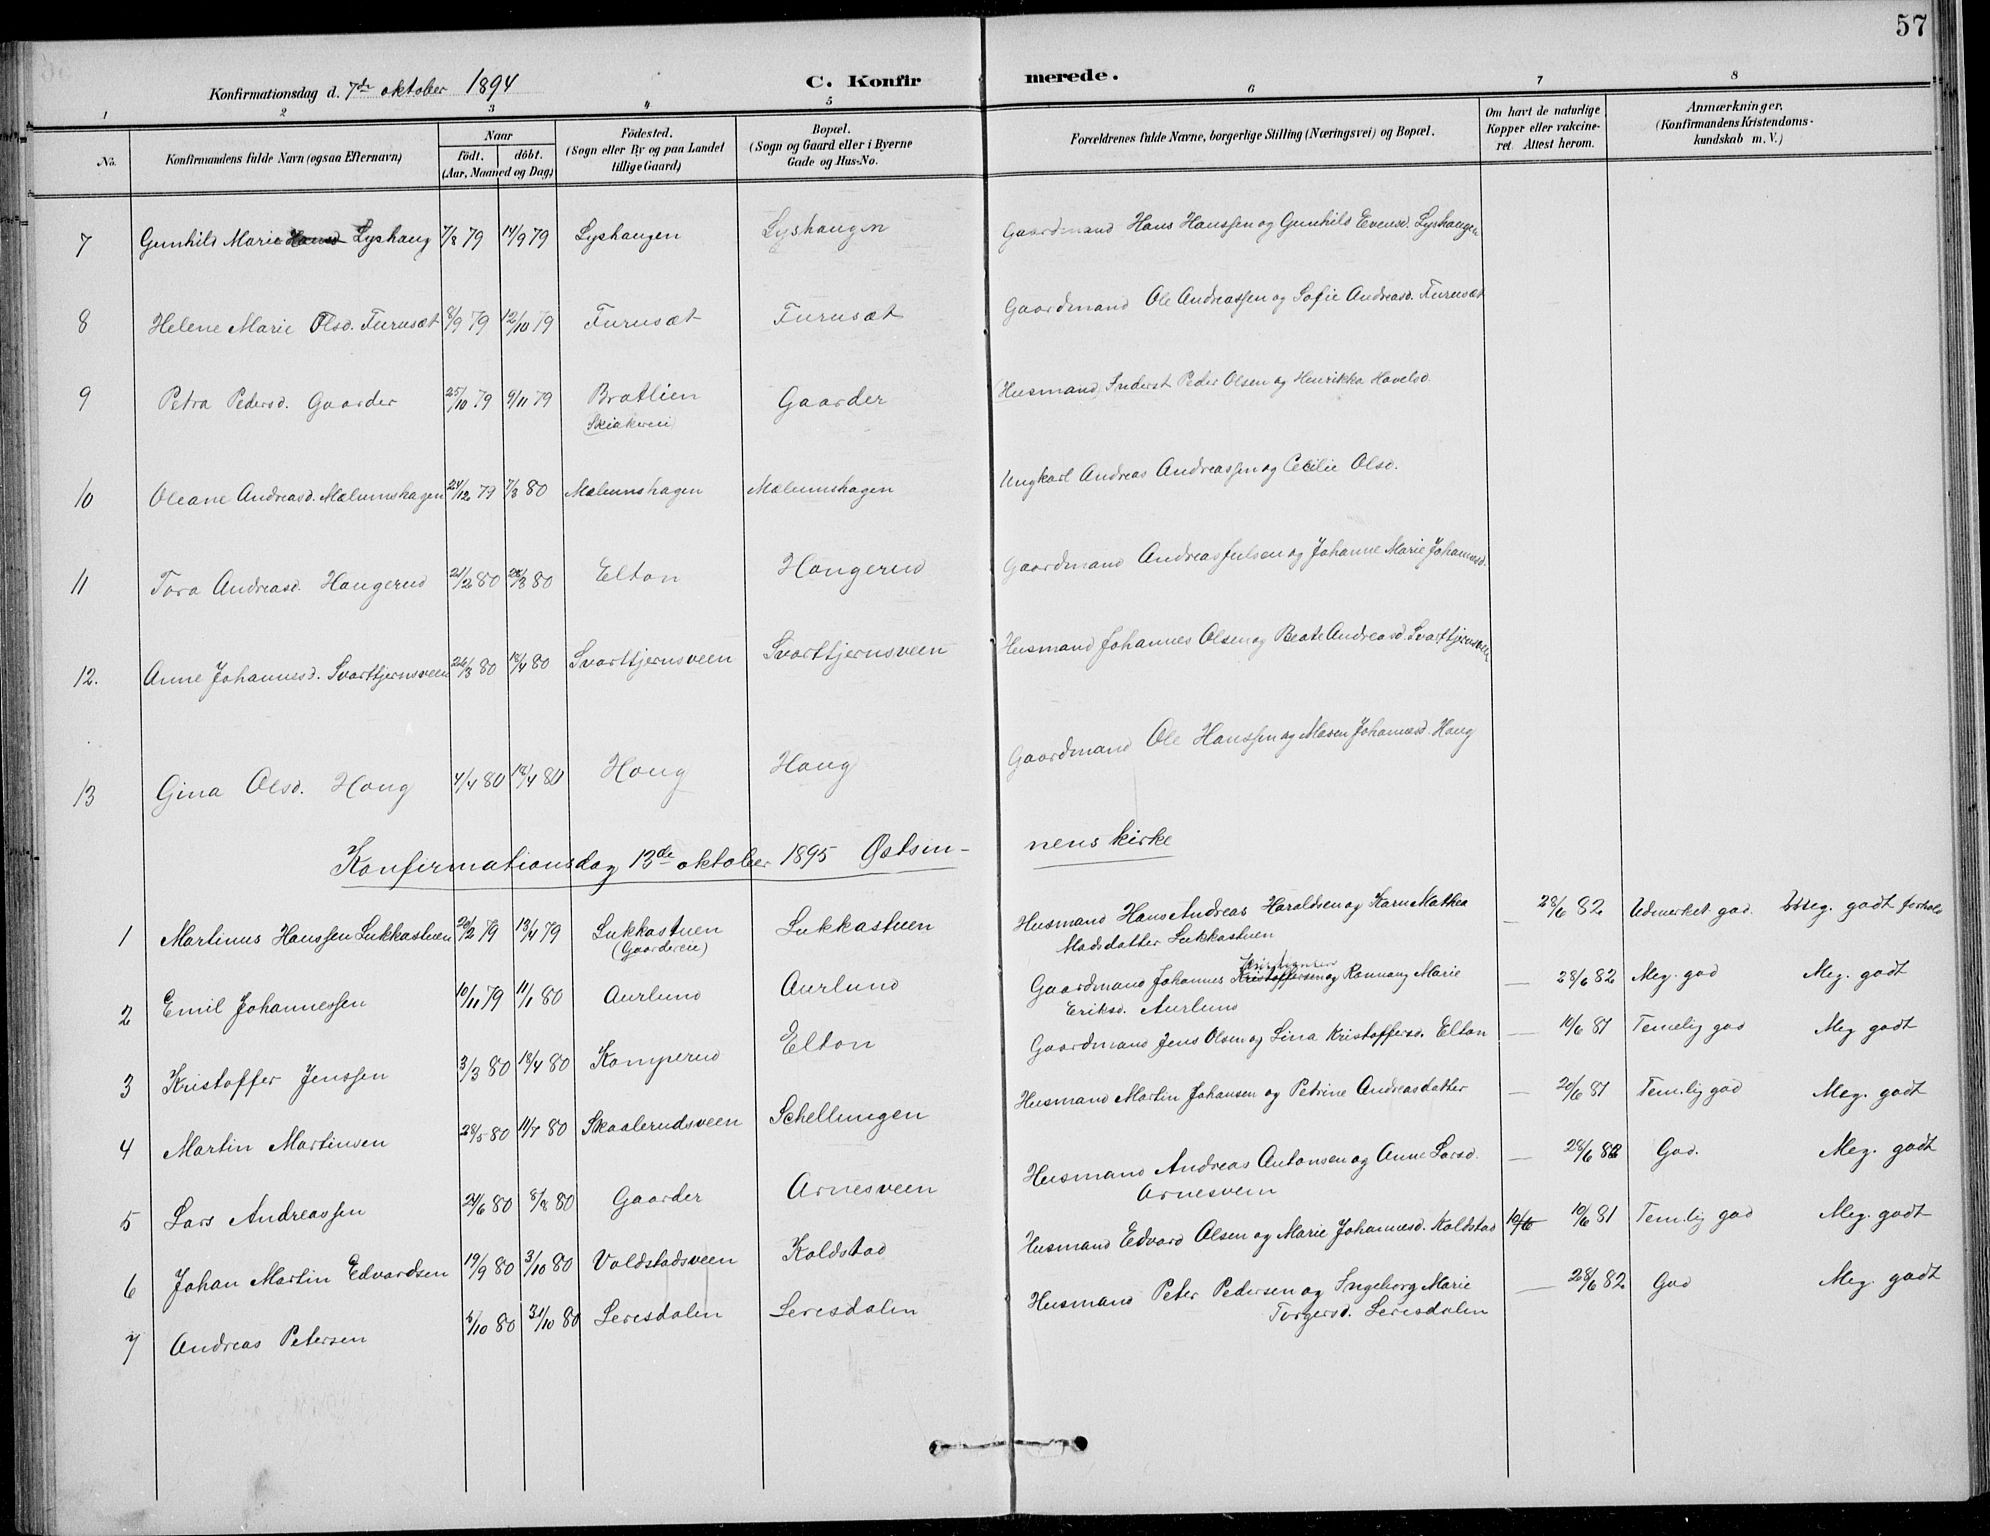 57
Konfirmationsdag d. 7de oktober 1894 C. Konfirmerede.
1 2 3 4 5 6 7 8
No.
Konfirmandens fulde Navn (ogsaa Efternavn)
Naar
födt. döbt.
(Aar, Maaned og Dag)
Födested.
(Sogn eller By og paa Landet
tillige Gaard)
Bopæl.
(Sogn og Gaard eller i Byerne
Gade og Hus-No.
Forældrenes fulde Navne, borgerlige Stilling (Næringsvei) og Bopæl.
Om havt de naturlige
Kopper eller vakcine-
ret. Attest herom.
Anmærkninger,
(Konfirmandens Kristendoms-
kundskab m. V.)
7 Gunhild Marie Hansd Lyshaug 7/8 79 14/9 79 Lyshaugen Lyshaugen Gaardmand Hans Hanssen og Gunhild Evensd. Lyshaugen
8 Helene Marie Olsd. Furusæt 8/9 79 12/10 79 Furusæt Furusæt Gaardmand Ole Andreassen og Sofie Andreasd. Furusæt
9 Petra Pedersd. Gaarder 25/10 79 9/11 79 Bratlien Gaarder Husmand, Inderst Peder Olsen og Henrikka Havelsd.
10 Oleane Andreasd. Mælumshagen 24/12 79 7/3 80 Mælumshagen Mælumshagen Ungkarl Andreas Andreassen og Cecilie Olsd.
11 Tora Andreasd. Haugerud 21/2 80 28/3 80 Elton Haugerud Gaardmand Andreas Julsen og Johanne Marie Johannesd.
12. Anne Johannesd. Svarttjernsveen 26/3 80 18/4 80 Svarttjernsveen Svarttjernsveen Husmand Johannes Olsen og Beate Andreasd. Svarttjernsveen
13 Gina Olsd. Haug 4/4 80 18/4 80 Haug Haug Gaardmand Ole Hanssen og Maren Johannesd. Haug
Konfirmationsdag 13de oktober 1895 Østsinnens kirke
1 Martinus Hanssen Lukkastuen 20/2 79 13/4 79 Lukkastuen Lukkastuen Husmand Hans Andreas Haraldsen og Karn Mathea — 28/6 82 Udmerket god. Meg. godt forhold
(Gaardereie) Madsdatter Lukkastuen
2 Emil Johannessen 10/11 79 11/1 80 Aurlund Aurlund Gaardmand Johannes Kristoffersen og Rannaug Marie — 28/6 82 Meg. god Meg. godt
Eriksd. Aurlund
3 Kristoffer Jenssen 3/3 80 18/4 80 Kamperud Elton Gaardmand Jens Olsen og Lina Kristoffersd. Elton — 10/6 81 Temelig god Meg godt
4 Martin Martinsen 28/5 80 11/7 80 Skaalerudsveen Schellungen Husmand Martin Johansen og Petrine Andreasdatter — 20/6 81 Temlig god Meg. godt
5 Lars Andreassen 24/6 80 8/8 80 Gaarder Arnesveen Husmand Andreas Antonsen og Anne Larsd. — 28/6 82 God. Meg. godt
Arnesveen
6 Johan Martin Edvardsen 19/9 80 3/10 80 Voldstadsveen Koldstad Husmand Edvard Olsen og Marie Johannesd. Koldstad 10/6 10/6 81 Temlig god Meg. godt
7 Andreas Petersen 5/10 80 31/10 80 Leresdalen Leresdalen Husmand Peter Pedersen og Ingeborg Marie — 28/6 82 God Meg. godt
Torgersd. Leresdalen